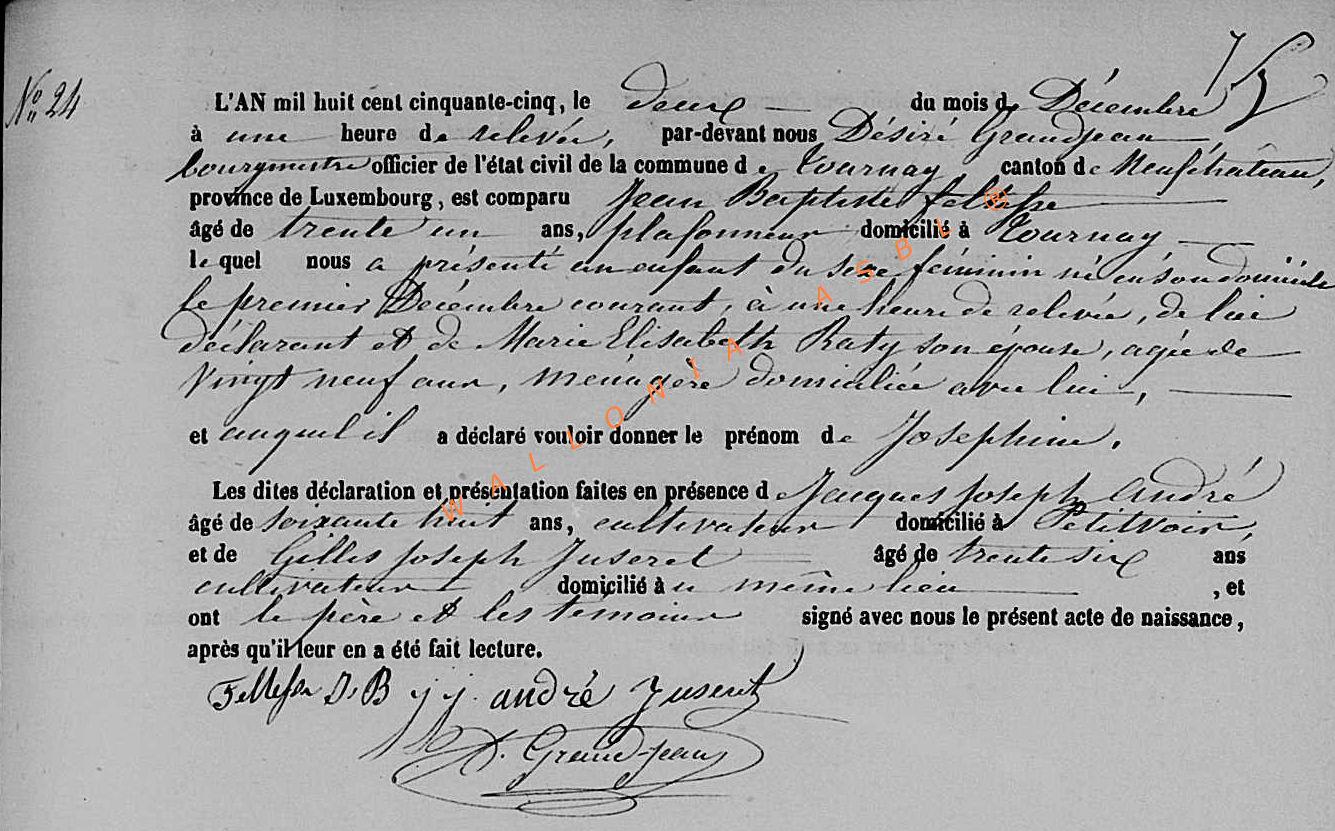 N° 24
L'AN mil huit cent cinquante-cinq, le deux du mois de Décembre
à une heure de relevée, par-devant nous Désiré Grandjean,
bourgmestre officier de l'état civil de la commune de Tournay canton de Neufchâteau,
province de Luxembourg, est comparu Jean Baptiste
âgé de trente un ans, plafonneur domicilié à Tournay
lequel nous a présenté un enfant du sexe féminin né en son domicile
le premier Décembre courant, à une heure de relevée, de lui
déclarant et de Marie Elisabeth Raty son épouse, agée de
vingt neuf ans, ménagère domiciliée avec lui,
et auquel il a déclaré vouloir donner le prénom de Josephine.
Les dites déclaration et présentation faites en présence de Jacques Joseph André
âgé de soixante huit ans, cultivateur domicilié à Petitvoir,
et de Gilles Joseph Juseret âgé de trente six ans
cultivateur domicilié à u même lieu, et
ont le père et les témoins signé avec nous le présent acte de naissance,
après qu'il leur en a été fait lecture.
J. B j j. andré Juseret
D. Grand-jean
WALLONIA ASBL ®